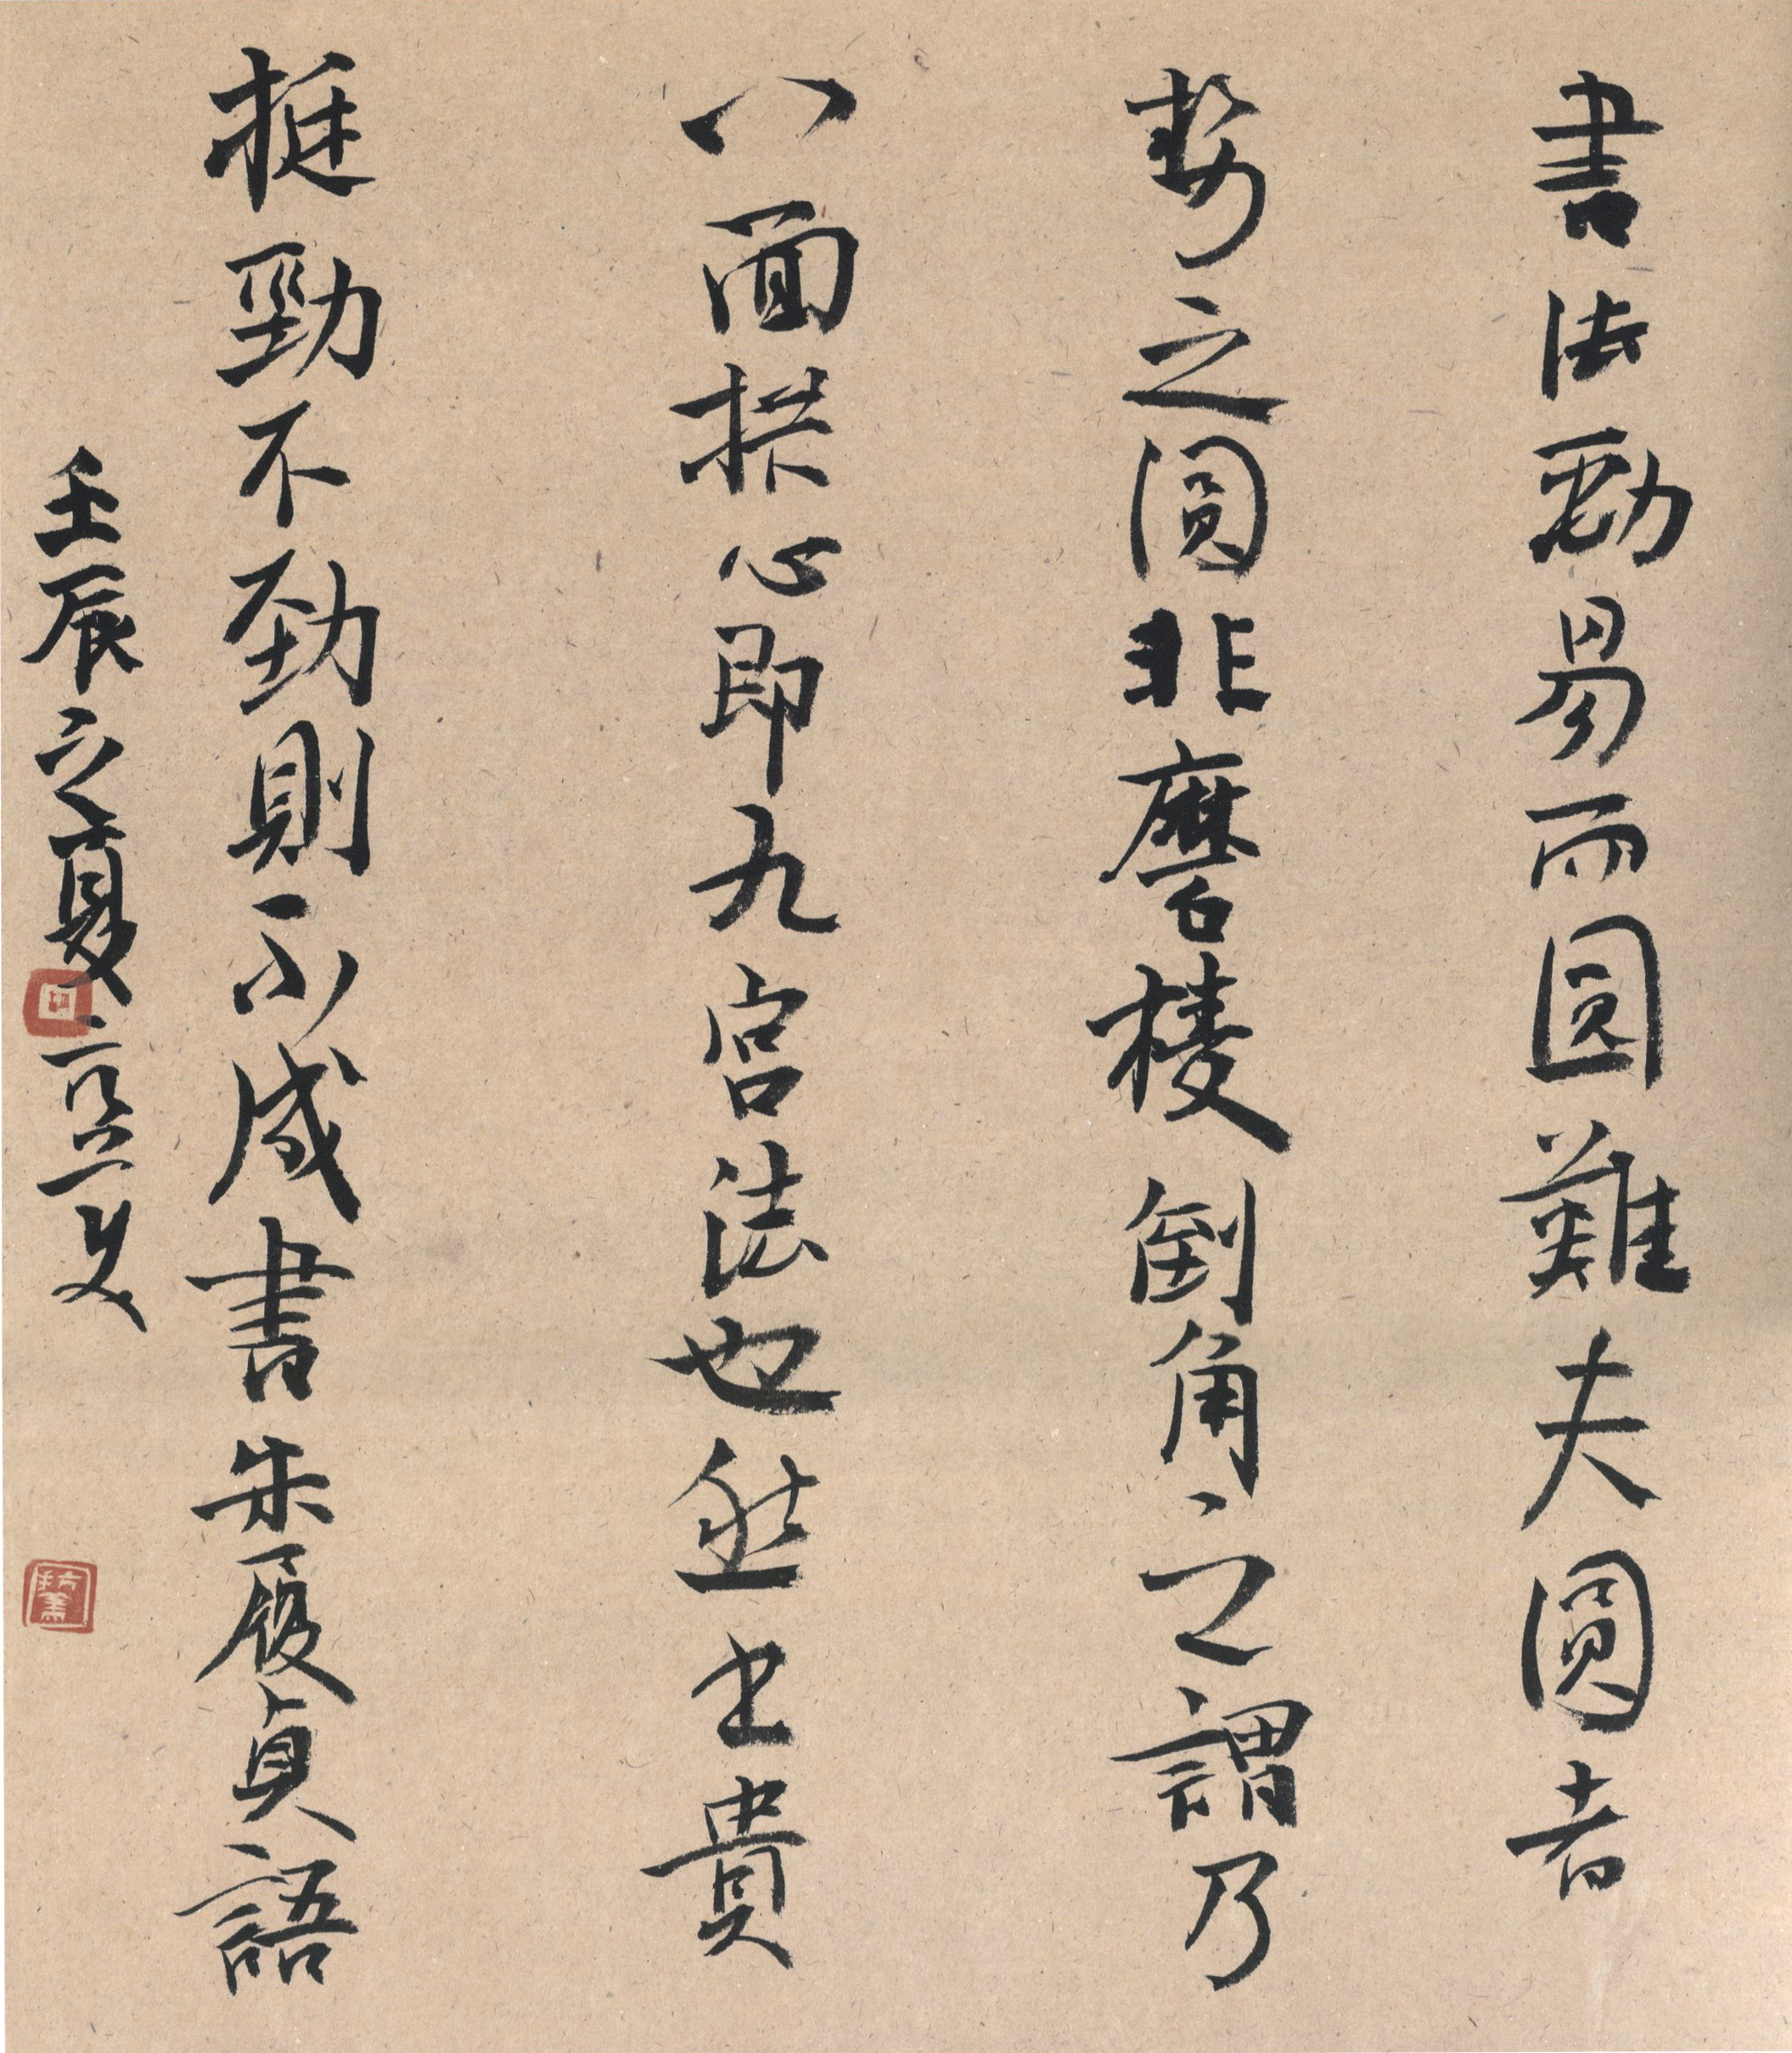 書法勁易而圓難夫圓者
勢之圓非磨棱倒角之謂乃
八面拱心即九宮法也然書貴
挺勁不勁則不成書朱履貞語
壬辰之夏